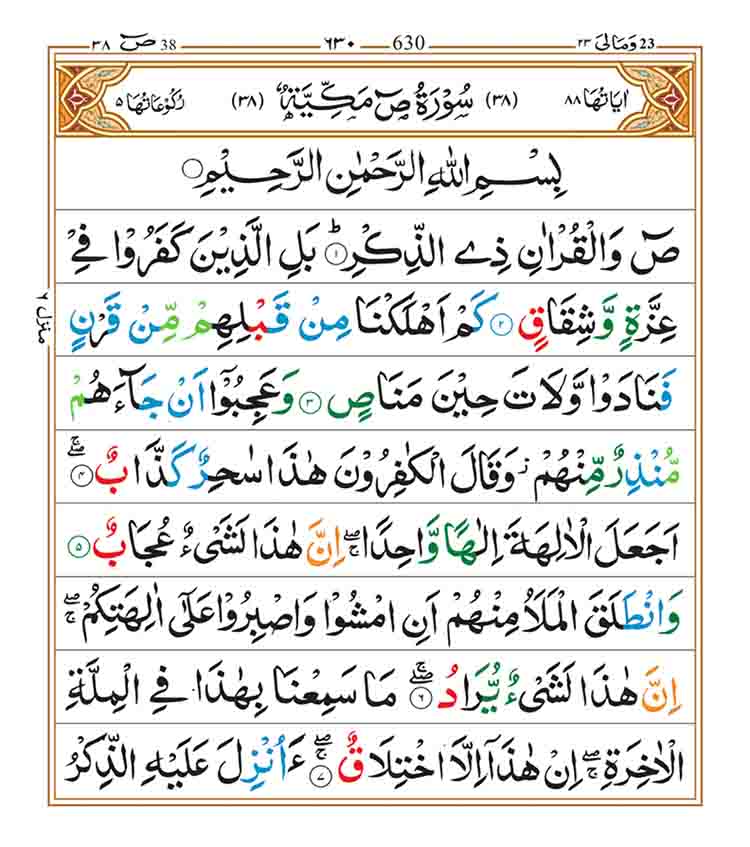 38 صٓ ٣٨ 630 ٦٣٠ 23 وَمَالِیَ ٢٣
اٰیَاتُهَا ٨٨ (٣٨) سُوۡرَةُ صٓ مَكِّیَّةٌ (٣٨) رُكُوۡعَاتُهَا ٥
بِسۡمِ اللّٰهِ الرَّحۡمٰنِ الرَّحِیۡمِ
صٓ وَالۡقُرۡاٰنِ ذِی الذِّكۡرِؕ ١ بَلِ الَّذِیۡنَ كَفَرُوۡا فِیۡ
عِزَّةٍ وَّشِقَاقٍ ٢ كَمۡ اَهۡلَكۡنَا مِنۡ قَبۡلِهِمۡ مِّنۡ قَرۡنٍ
فَنَادَوۡا وَّلَاتَ حِیۡنَ مَنَاصٍ ٣ وَعَجِبُوۡۤا اَنۡ جَآءَهُمۡ
مُّنۡذِرٌ مِّنۡهُمۡ ز وَقَالَ الۡكٰفِرُوۡنَ هٰذَا سٰحِرٌ كَذَّابٌ ۖۚ ٤
اَجَعَلَ الۡاٰلِهَةَ اِلٰهًا وَّاحِدًا ۖۚ اِنَّ هٰذَا لَشَیۡءٌ عُجَابٌ ٥
وَانۡطَلَقَ الۡمَلَاُ مِنۡهُمۡ اَنِ امۡشُوۡا وَاصۡبِرُوۡا عَلٰۤی اٰلِهَتِكُمۡ ۖۚ
اِنَّ هٰذَا لَشَیۡءٌ یُّرَادُ ۖۚ ٦ مَا سَمِعۡنَا بِهٰذَا فِی الۡمِلَّةِ
الۡاٰخِرَةِ ۖۚ اِنۡ هٰذَاۤ اِلَّا اخۡتِلَاقٌ ۖۚ ٧ ءَاُنۡزِلَ عَلَیۡهِ الذِّكۡرُ
منزل ٦